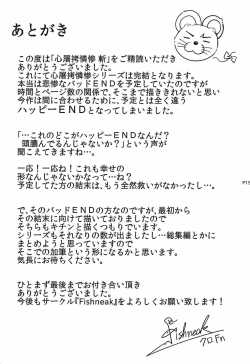 あとがき
この度は「心屠拷情惨 斬」をご精読いただき
ありがとうございました。
これにて心屠拷情惨シリーズは完結となります。
本当は悲惨なバッドENDを予定していたのですが
時間とページ数の関係で、そこまで描ききれないと思い
今作は間に合わせるために、予定とは全く違う
ハッピーENDとなってしまいました。
「…これのどこがハッピーENDなんだ?
頭膿んでるんじゃないか?」という声が
聞こえてきますね…。
一応!一応ね!これも幸せの
形なんじゃないかなって…ね?
予定してた方の結末は、もう全然救いがなかったし…。
で、そのバッドENDの方なのですが、最初から
その結末に向けて描いておりましたので
そちらもキチンと描くつもりでいます。
シリーズもそれなりの数が出ましたし…総集編とかに
まとめようと思っていますので
そこでの加筆という形になるかと思います。
気長にお待ちください。
ひとまず最後までお付き合い頂き
ありがとうございました。
今後もサークル『Fishneak』をよろしくお願い致します!
Fishneak